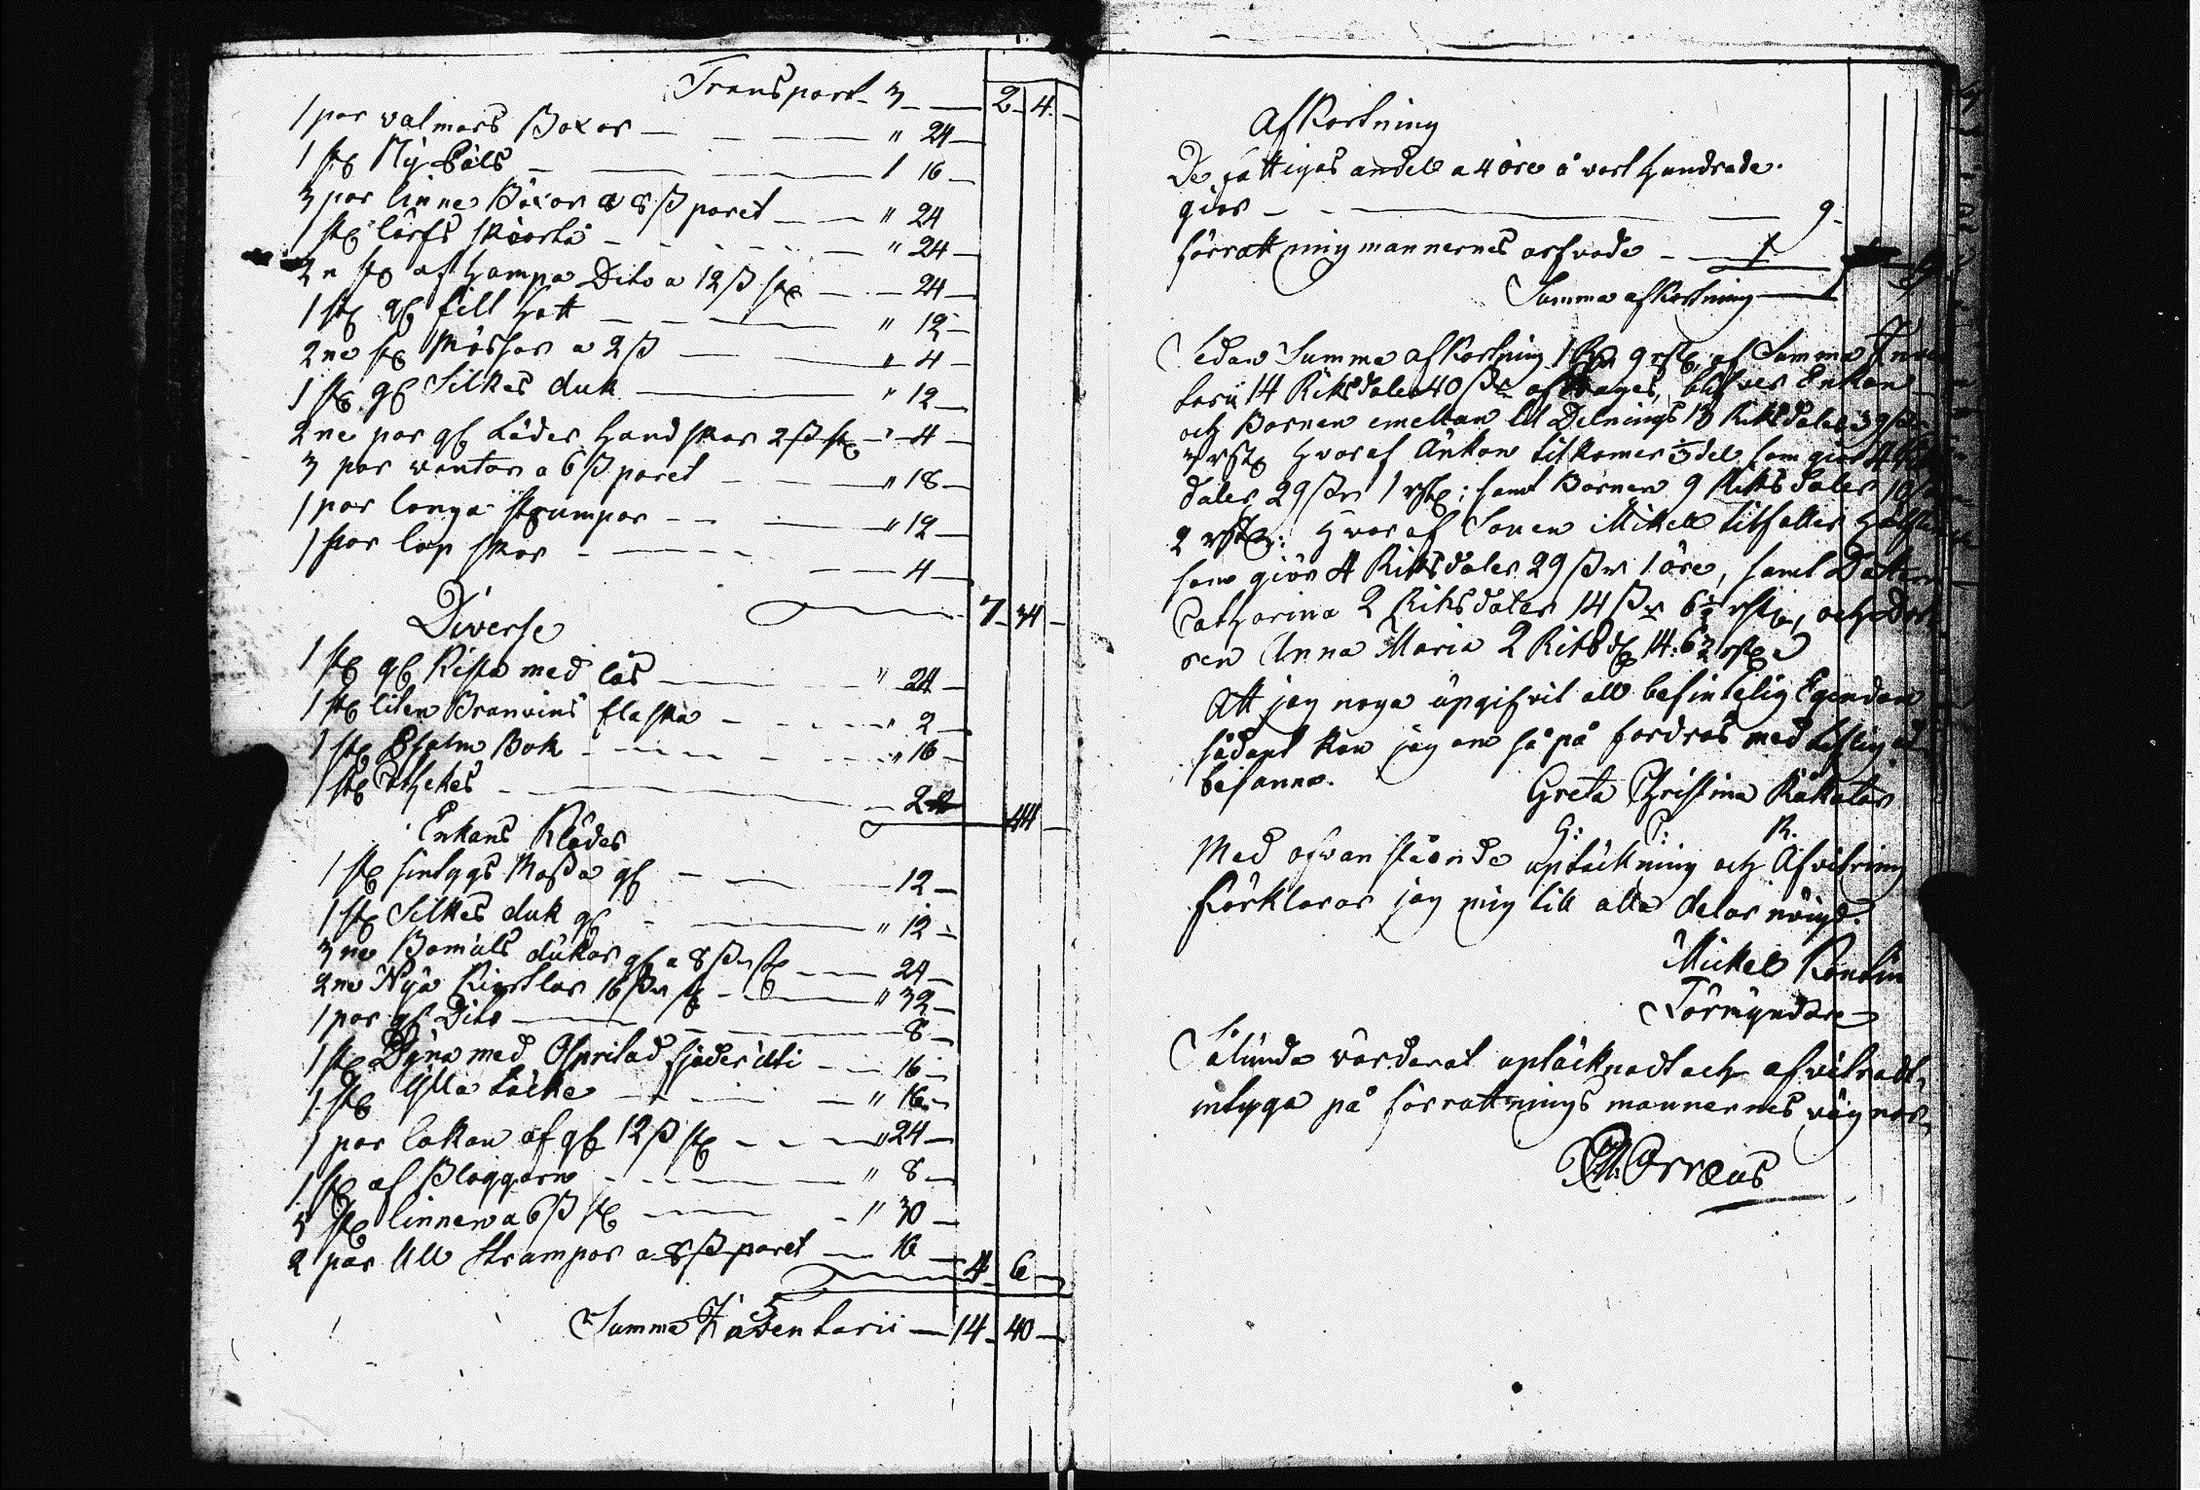 Transport 3 — 2 4 —
1 par valmars Boxor — — — " 24 —
1 st Ny Päls — — 1 16 —
3 par linne Böxor a 8 ß paret — — " 24
1 st lärfs skiorta — — " 24 —
2ne st af Hampa Dito a 12 ß st — — 24 —
1 st gl fillt Hatt — — " 12 —
2ne st Mössor a 2 ß — — " 4 —
1 st gl Silkes duk — " 12 —
2ne par gl Läder Handskar 2 ß st — " 4 —
3 par wantar a 6 ß paret — — " 18 —
1 par långa strumpor — — " 12 —
1 par lap skor — — 4 —
7 34 —
Diverse
1 st gl Kista med lås — " 24 —
1 st liten Branvins flaska — " 2 —
1 st Psalm Bok — " 16 —
1 st — 2
44 —
Enkans Kläder
1 st sintygs Mössa gl — 12 —
1 st Silkes duk gl — " 12 —
3ne Bomuls dukar gl a 8 ß st — 24 —
2ne Nya Kiortlar 16 ß st — " 32 —
1 par gl Dito — — 8 —
1 st Dyna med Ospritad fjäder uti — 16 —
1 st Ylla Täcke — — " 16 —
1 par lakan af gl 12 ß st — — " 24 —
1 st af Blaggarn — " 8 —
5 st linnen a 6 ß st — — " 30 —
2 par Ull strumpor a 8 ß paret — 16 — 4 6 —
Summa Inventarii — 14 40 —
Afkortning
De fattigas andel a 4 öre å vart Hundrade
giör — — 9 —
förrättningmannernes arfvode — 1
Summa afkortning — 1 9
Sedan Summa afkortning 1 9 rst af Summa Inven
tarii 14 Riksdaler 40 ß afdrages, blifver Enkan
och Barnen emellan till Delnings 13 Riksdaler 39 ß
3 rst Hvaraf Änkan tilkomer 1/3 del som giör 4 Riks
daler 29 ß 1 rst; samt Barnen 9 Riksdaler 10 ß
2 rst: Hvaraf Sonen Mikell tilfaller Hälften
som giör 4 Riksdaler 29 ß 1 öre, samt Dottren
Catharina 2 Riksdaler 14 ß 6 1/2 rst, och Dott
ren Anna Maria 2 Riksd 14. 6 1/2 rst
Att jag noga upgifvit all befintelig Egendom
sådant kan jag om så på fordras med liflig ed
besanna. Greta Christina
G: C: R.
Med ofvan stående uptäckning och Afvitring
förklarar jag mig till alla delar nöigd.
Mickel
Förmyndare
Sålunda värderat uptäcknadt och afvitradt,
intyga på förrattnings mannernes vägnar,
Orræus